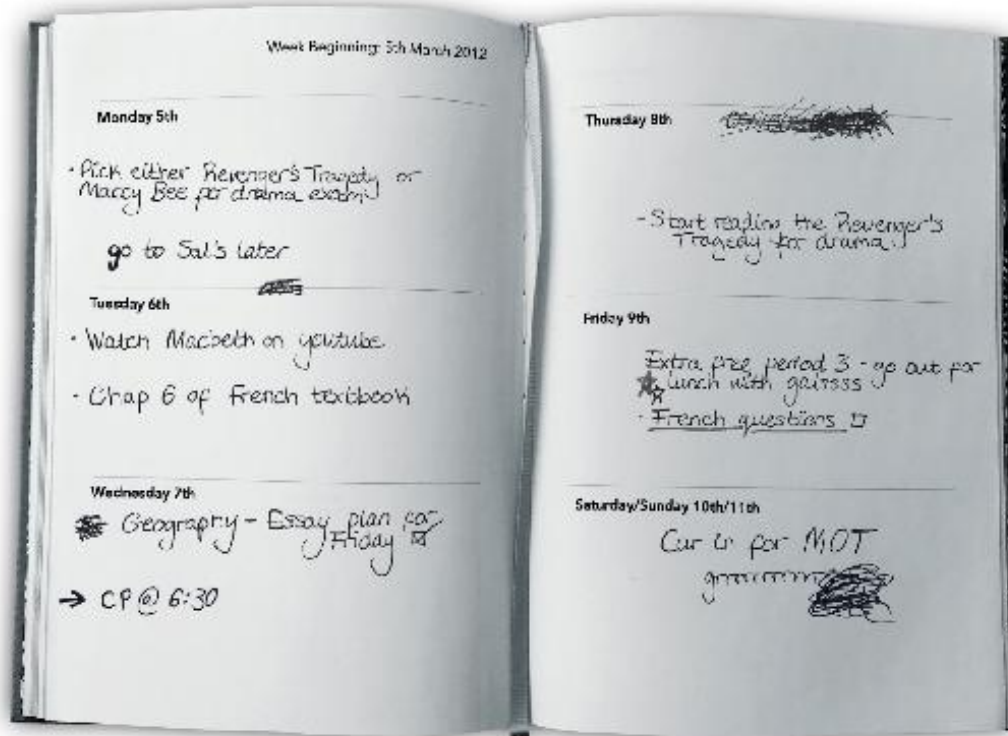 Week Beginning: 5th March 2012
Monday 5th
· Pick either Revenger's Tragedy or
Maccy Bee for drama exam
go to Sal's later
Tuesday 6th
· Watch Macbeth on youtube
· Chap 6 of French textbook
Wednesday 7th
Geography - Essay plan for
Friday
→ CP @ 6:30
Thursday 8th
- Start reading the Revenger's
Tragedy for drama
Friday 9th
Extra free period 3 - go out for
lunch with
· French questions
Saturday/Sunday 10th/11th
Car in for MOT